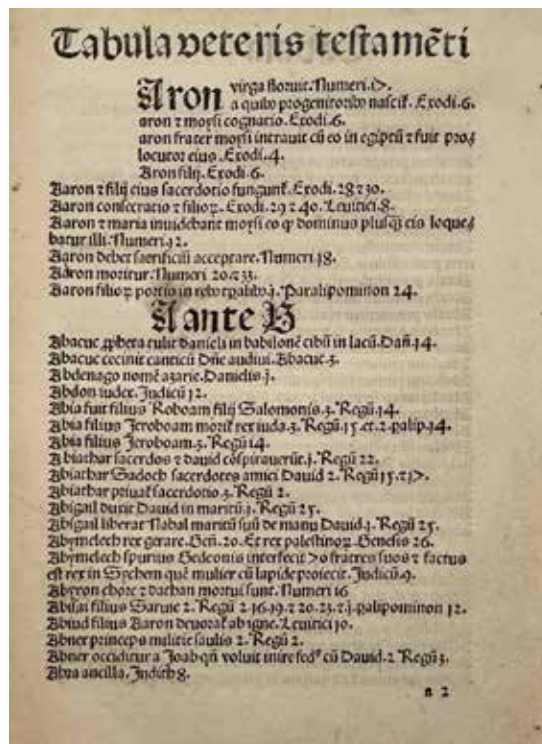 Tabula veteris testamēti
Aron virga floruit. Numeri. 17.
a quibꝰ progenitoribꝰ nascit̃. Exodi. 6.
aron ⁊ moysi cognatio. Exodi. 6.
aron frater moysi intravit cū eo in egiptū ⁊ fuit pro⸗
locutor eius. Exodi. 4.
Aron filij. Exodi. 6.
Aaron ⁊ filij eius sacerdotio fungunt̃. Exodi. 28 ⁊ 30.
Aaron consecratio ⁊ filioꝝ. Exodi. 29 ⁊ 40. Levitici. 8.
Aaron ⁊ maria invidebant moysi eo ꝙ dominus plusꝙ̃ eis loque⸗
batur illi. Numeri. 12.
Aaron debet sacrificiū acceptare. Numeri. 18.
Aaron moritur. Numeri 20. ⁊ 33.
Aaron filioꝝ portio in rebꝰ j. Paralipominon 24.
A ante B
Abacuc ꝓpheta tulit danieli in babilonē cibū in lacū. Dañ. 14.
Abacuc cecinit canticū Dñe audivi. Abacuc. 3.
Abdenago nomē azarie. Danielis. j.
Abdon iudex. Judicū 12.
Abia fuit filius Roboam filij Salomonis. 3. Regū. 14.
Abia filius Jeroboam morit̃ rex iuda. 3. Regū. 15. et. 2. palip. 14.
Abia filius Jeroboam. 3. Regū 14.
Abiathar sacerdos ⁊ david cōspiraverūt. j. Regū 22.
Abiathar Sadoch sacerdotes amici David 2. Regū 15. ⁊ 17.
Abiathar privat̃ sacerdotio. 3. Regū 2.
Abigail duxit David in maritū. j. Regū 25.
Abigail liberat Nabal maritū suū de manu David. j. Regū 25.
Abymelech rex gerare. Geñ. 20. Et rex palestinoꝝ. Genesis 26.
Abymelech spurius Gedeonis interfecit 70 fratres suos ⁊ factus
est rex in Sychem quē mulier cū lapide proiecit. Judicū. 9.
Abyron chore ⁊ dathan mortui sunt. Numeri 16
Abisai filius Sarvie 2. Regū 2. 16. 19. ⁊ 20. 23. ⁊. j. palipominon 12.
Abiud filius Aaron devorat̃ ab igne. Levitici 10.
Abner princeps militie saulis 2. Regū 2.
Abner occiditur a Joab qñ voluit inire fedꝰ cū David. 2 Regū 3.
Abra ancilla. Judith 8.
a 2